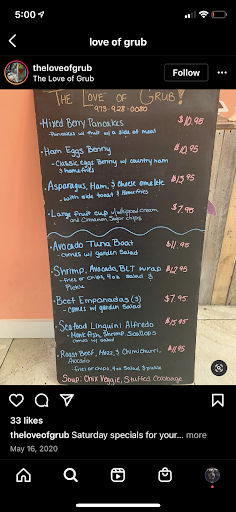 5:00
love of grub
theloveofgrub
The Love of Grub
Follow
The Love of Grub!
973-928-0080
• Mixed Berry Pancakes $10.95
- Pancakes w/ fruit w/ a side of meat
• Ham Eggs Benny $12.95
- Classic eggs Benny w/ country ham
& homefries
• Asparagus, Ham, & Cheese omelete $13.95
- with side toast & Homefries
• Large fruit cup w/whipped cream $7.95
and Cinnamon Sugar chips
• Avocado Tuna Boat $11.95
- comes w/ garden Salad
• Shrimp, Avocado, BLT wrap $12.95
- fries or chips, 4oz salad &
Pickle
• Beef Empanadas (3) $7.95
- comes w/ garden Salad
• Seafood Linguini Alfredo $15.95
- Monk Fish, Shrimp, Scallops
comes w/ salad
• Roast Beef, Mozz, & Chimichurri, $11.95
Avocado
- fries or chips, 4oz Salad & pickle
Soup: Chix Veggie, Stuffed Cabbage
33 likes
theloveofgrub Saturday specials for your... more
May 16, 2020